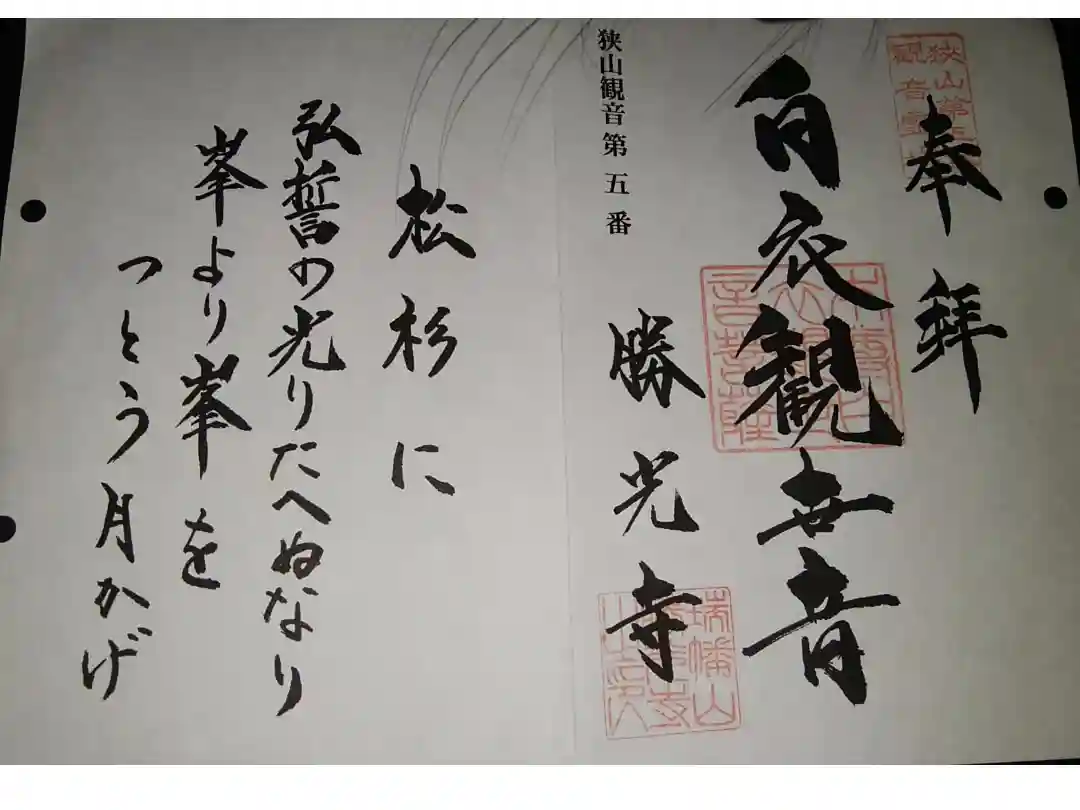 奉拝
白衣観世音
狭山観音第五番
勝光寺
松杉に
弘誓の光りたへぬなり
峯より峯を
つとう月かげ
瑞幡山